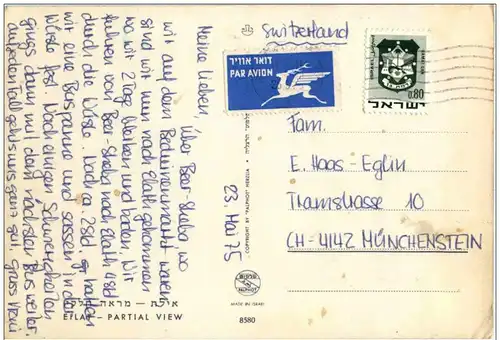 Switzerland
23. Mai 75
Meine Lieben,
Über Beer-Sheba wo
wir auf dem Beduinenmarkt waren
sind wir nun nach Elath gekommen
wo wir 2 Tage bleiben und baden. Wir
fuhren von Beer-Sheba nach Elath 4 Std
durch die Wüste. Nach ca. 2 Std hatten
wir eine Buspanne und sassen in der
Wüste fest. Nach einigen
gings dann mit dem nächsten Bus weiter.
auf jeden Fall gehts uns ganz gut. gruss
דואר אוויר
PAR AVION
ישראל
0.80
Fam.
E. Haas-Eglin
Tramstrasse 10
CH-4142 MÜNCHENSTEIN
COPYRIGHT BY PALPHOT HERZLIA
PALPHOT
MADE IN ISRAEL
אילת — מראה חלקי
EILAT — PARTIAL VIEW
8580